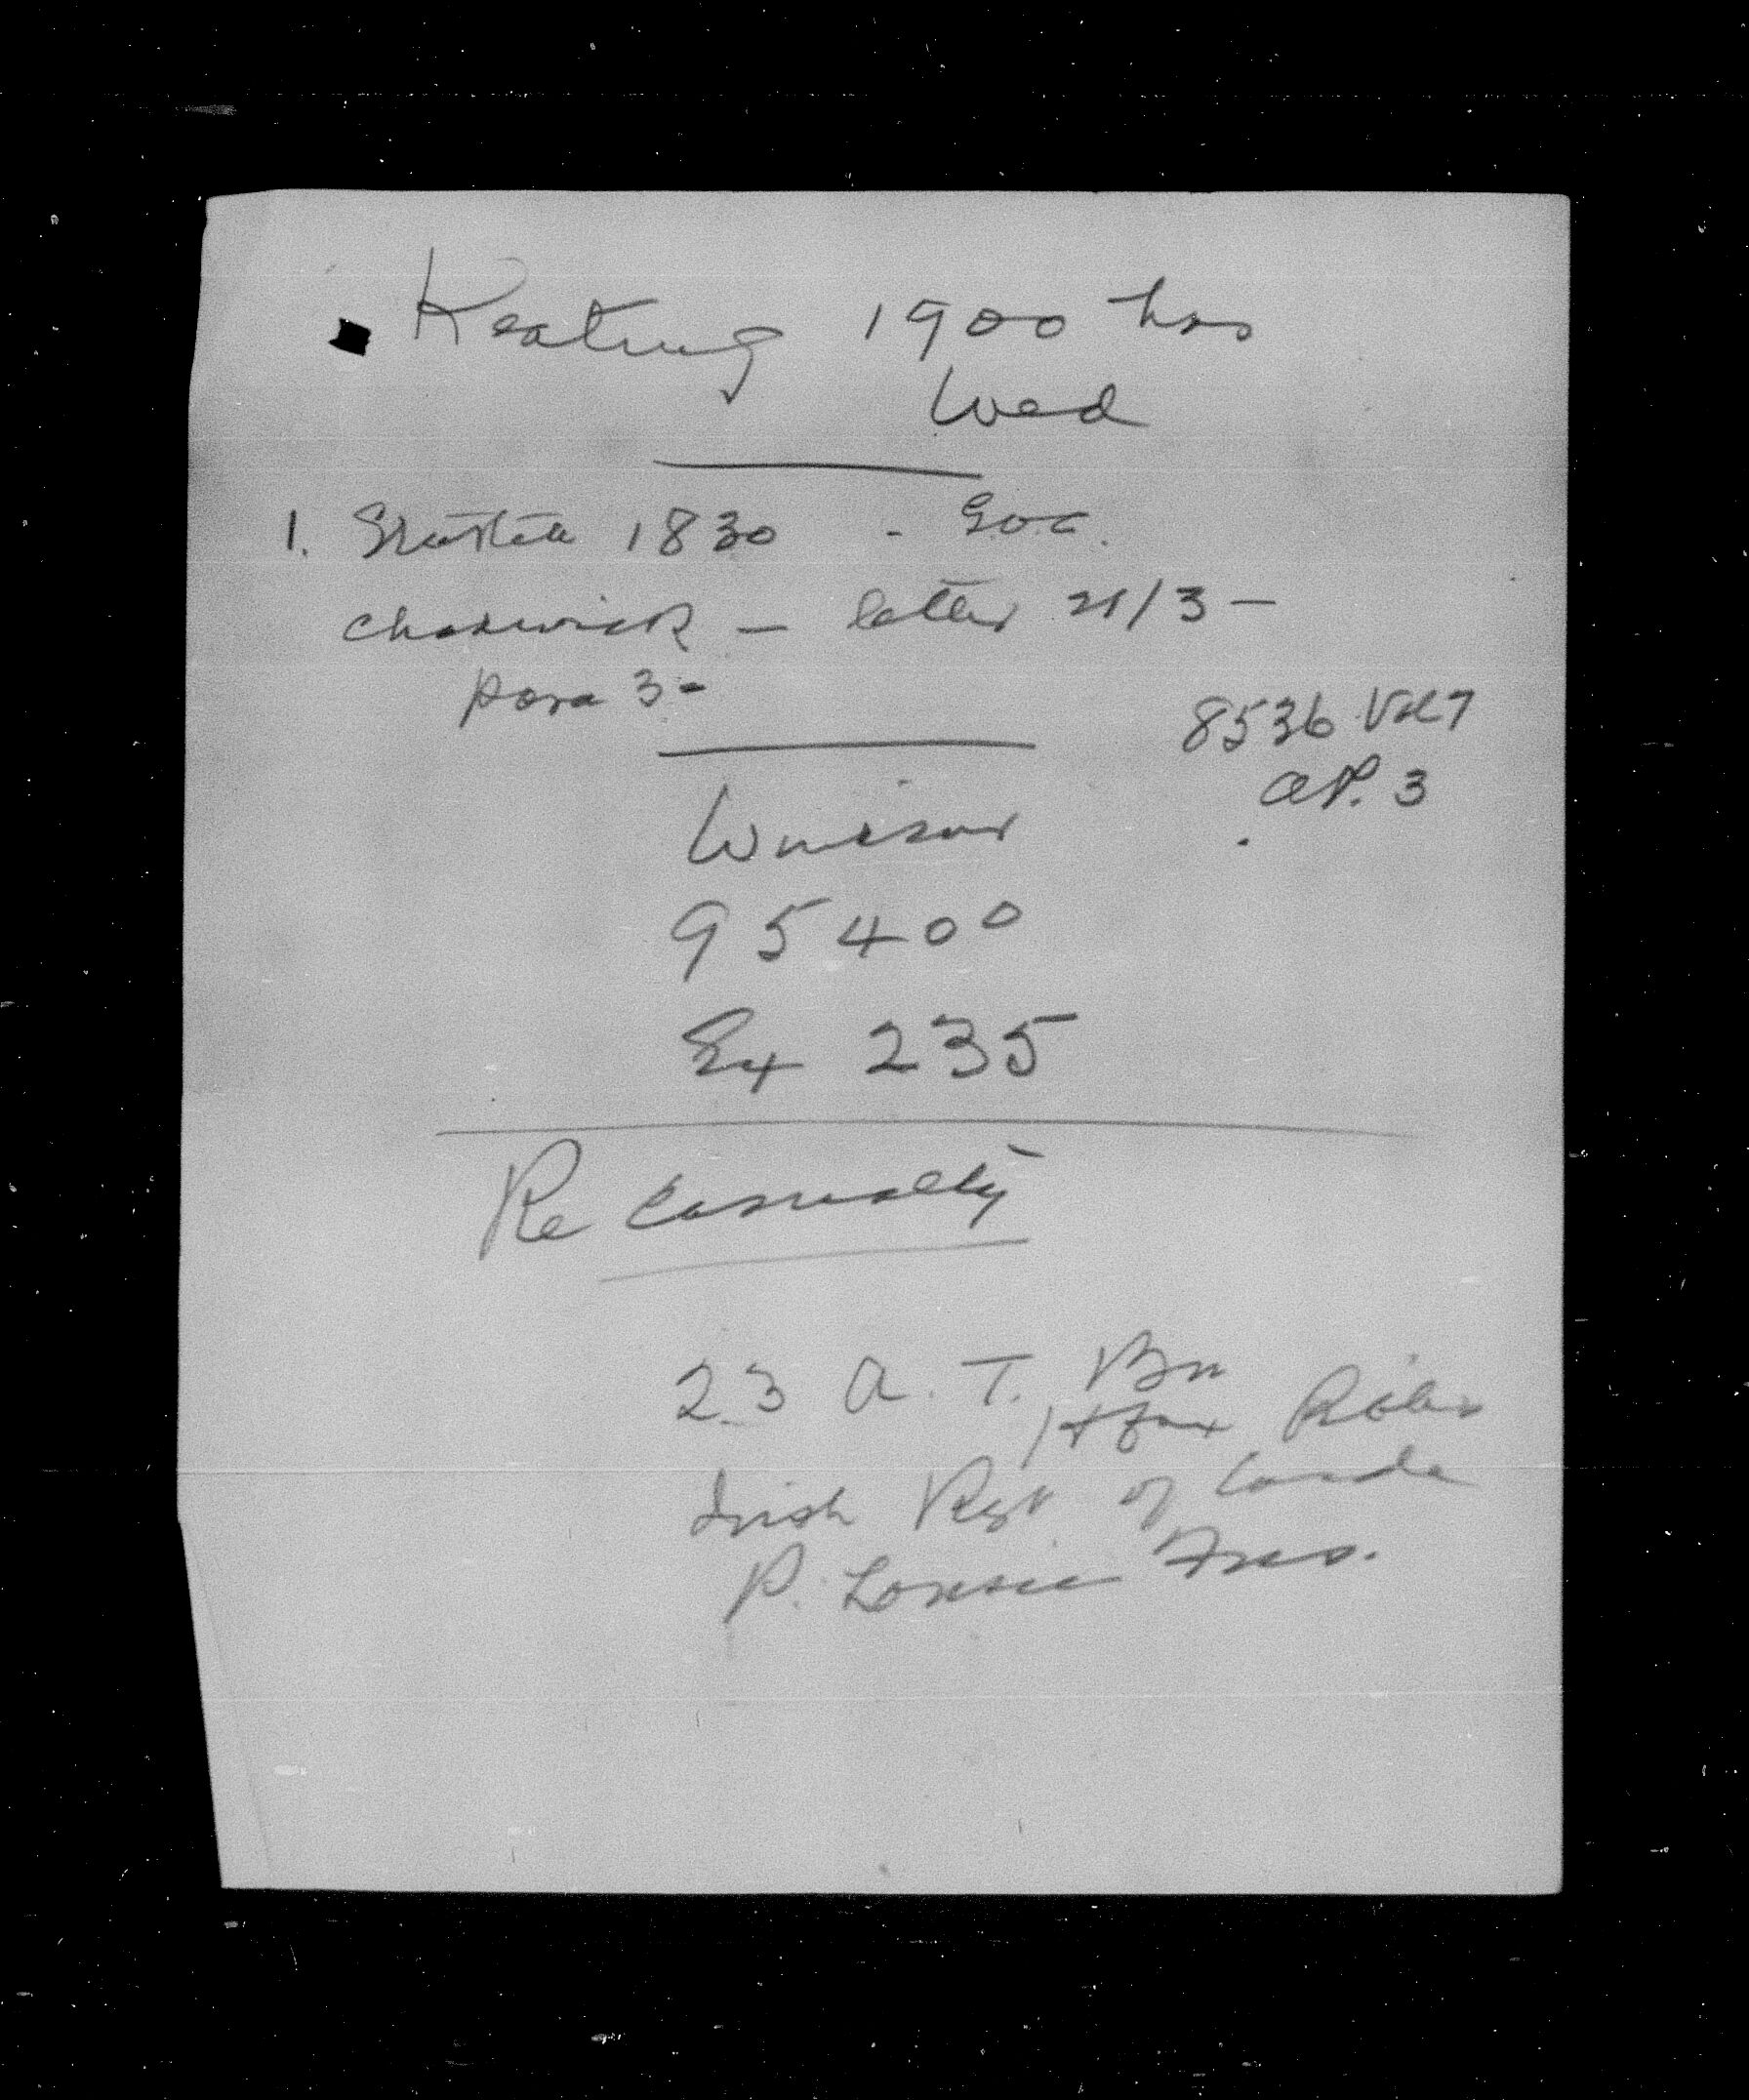 Keating 1900 hrs
Wed
1. 1830 - G.O.C.
Chadwick - letter 21/3 -
para 3 -
8536 Vol 7
AP. 3
Windsor
95400
Ex 235
Re Casualty
23 A. T. Bn
Hfax Rifles
Irish Rgt of Canada
P. Louise Fus.